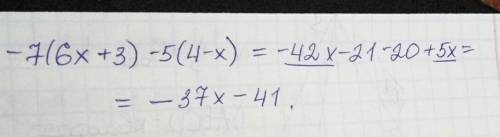 -7(6x+3)-5(4-x) = -42x-21-20+5x=
= -37x-41.